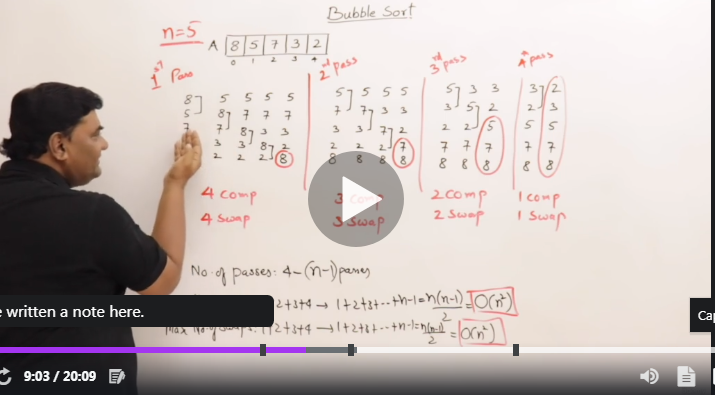 Bubble Sort
n=5
A 8 5 7 3 2
0 1 2 3 4
1st Pass
8 5 5 5 5
5 8 7 7 7
7 7 8 3 3
3 3 8 2
2 2 2 8
4 Comp
4 Swap
2nd pass
5 5 5 5
7 7 3 3
3 3 7 2
2 2 2 7
8 8 8 8
3 Comp
3 Swap
3rd pass
5 3 3
3 5 2
2 2 5
7 7 7
8 8 8
2 Comp
2 Swap
4th pass
3 2
2 3
5 5
7 7
8 8
1 Comp
1 Swap
No. of passes: 4 – (n-1) passes
2+3+4 → 1+2+3+...+n-1 = n(n-1)/2 = O(n²)
Max No. of Swaps: 1+2+3+4 → 1+2+3+...+n-1 = n(n-1)/2 = O(n²)
e written a note here.
Cap
9:03 / 20:09